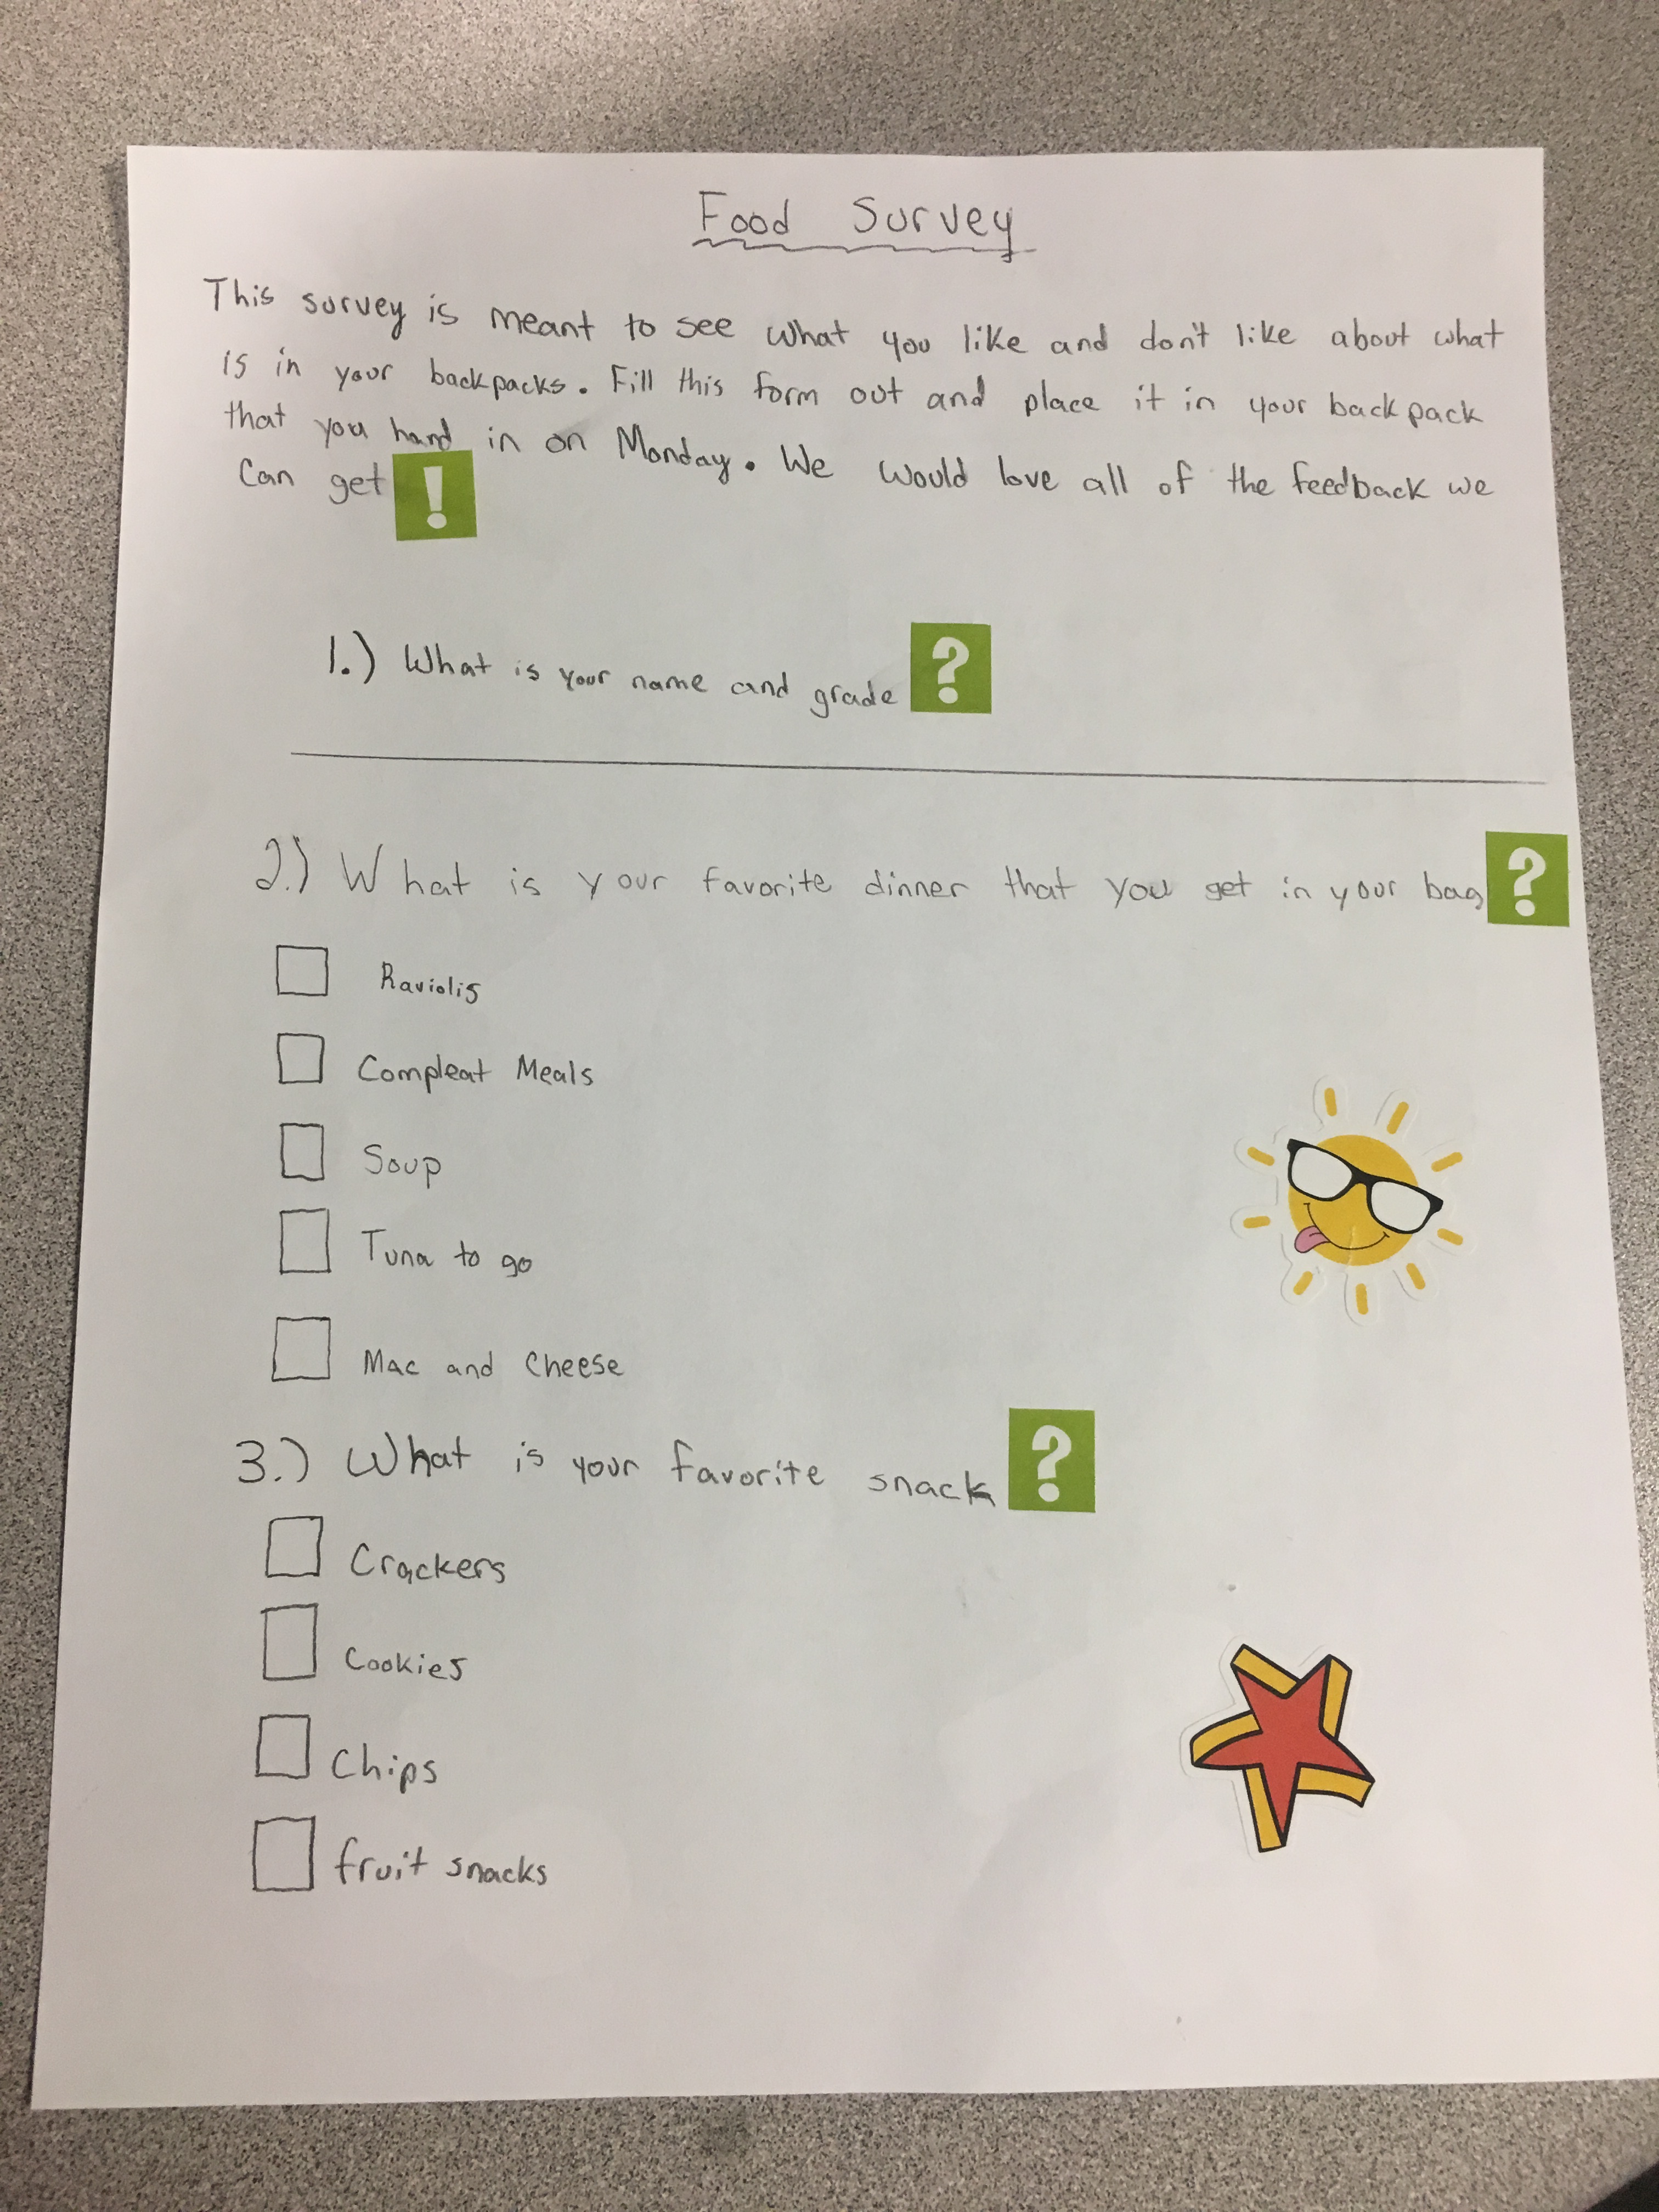 Food Survey
This survey is meant to see what you like and don't like about what
is in your backpacks. Fill this form out and place it in your backpack
that you hand in on Monday. We would love all of the feedback we
can get!
1.) What is your name and grade?
2.) What is your favorite dinner that you get in your bag?
Raviolis
Compleat Meals
Soup
Tuna to go
Mac and Cheese
3.) What is your favorite snack?
Crackers
Cookies
Chips
fruit snacks